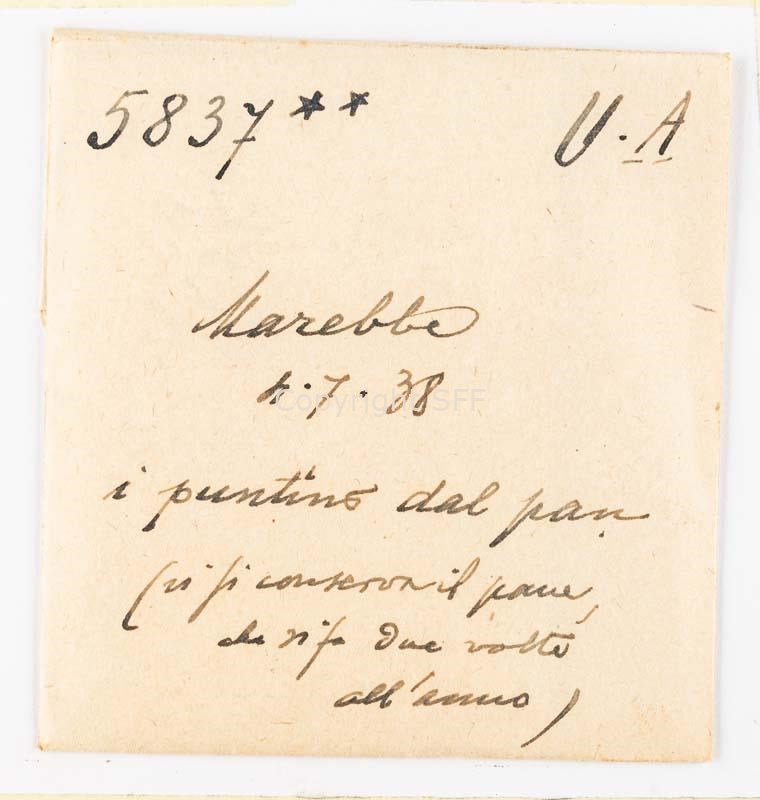 5837** U.A
Marebbe
4.7.38
Copyright SFF
i puntins dal pan
(vi si conserva il pane,
che si fa due volte
all'anno)